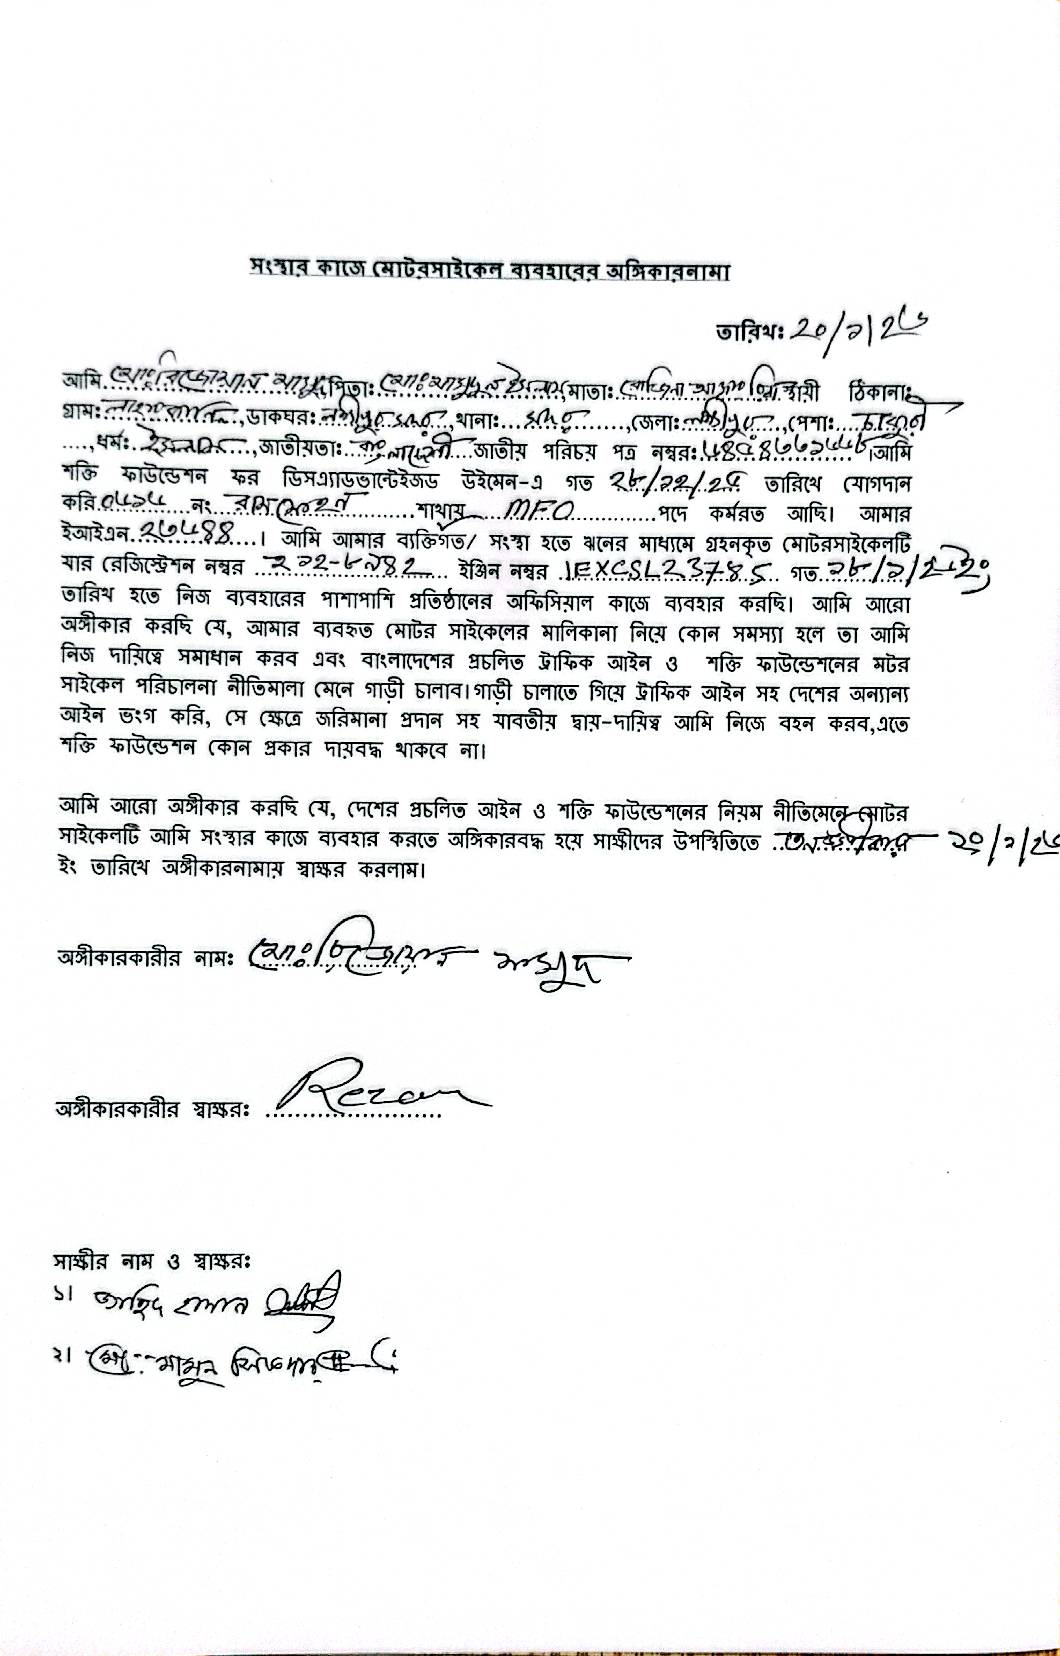 সংস্থার কাজে মোটরসাইকেল ব্যবহারের অঙ্গিকারনামা
তারিখঃ ২০/১/২৬
আমি মোঃ রিজোয়ান মাহমুদ পিতাঃ মোঃ মাহমুদুল ইসলাম, মাতাঃ স্থায়ী ঠিকানাঃ
গ্রামঃ ,ডাকঘরঃ লক্ষ্মীপুর সদর, থানাঃ সদর ,জেলাঃ লক্ষ্মীপুর ,পেশাঃ চাকুরী
,ধর্মঃ ইসলাম ,জাতীয়তাঃ বাংলাদেশী জাতীয় পরিচয় পত্র নম্বরঃ ।আমি
শক্তি ফাউন্ডেশন ফর ডিসএ্যাডভান্টেইজড উইমেন-এ গত ২৮/১২/২৫ তারিখে যোগদান
করি নং শাখায় MFO পদে কর্মরত আছি। আমার
ইআইএন ২৩৬৪৪ । আমি আমার ব্যক্তিগত/ সংস্থা হতে ঋনের মাধ্যমে গ্রহনকৃত মোটরসাইকেলটি
যার রেজিস্ট্রেশন নম্বর ইঞ্জিন নম্বর JEXCSL23785 গত তারিখ হতে নিজ ব্যবহারের পাশাপাশি প্রতিষ্ঠানের অফিসিয়াল কাজে ব্যবহার করছি। আমি আরো
অঙ্গীকার করছি যে, আমার ব্যবহৃত মোটর সাইকেলের মালিকানা নিয়ে কোন সমস্যা হলে তা আমি
নিজ দায়িত্বে সমাধান করব এবং বাংলাদেশের প্রচলিত ট্রাফিক আইন ও শক্তি ফাউন্ডেশনের মটর
সাইকেল পরিচালনা নীতিমালা মেনে গাড়ী চালাব।গাড়ী চালাতে গিয়ে ট্রাফিক আইন সহ দেশের অন্যান্য
আইন ভংগ করি, সে ক্ষেত্রে জরিমানা প্রদান সহ যাবতীয় দ্বায়-দায়িত্ব আমি নিজে বহন করব,এতে
শক্তি ফাউন্ডেশন কোন প্রকার দায়বদ্ধ থাকবে না।
আমি আরো অঙ্গীকার করছি যে, দেশের প্রচলিত আইন ও শক্তি ফাউন্ডেশনের নিয়ম নীতিমেনে মোটর
সাইকেলটি আমি সংস্থার কাজে ব্যবহার করতে অঙ্গিকারবদ্ধ হয়ে সাক্ষীদের উপস্থিতিতে ২০/১/২৬
ইং তারিখে অঙ্গীকারনামায় স্বাক্ষর করলাম।
অঙ্গীকারকারীর নামঃ মোঃ রিজোয়ান মাহমুদ
অঙ্গীকারকারীর স্বাক্ষরঃ Rezan
সাক্ষীর নাম ও স্বাক্ষরঃ
১।
২। মোঃ মামুন সিকদার